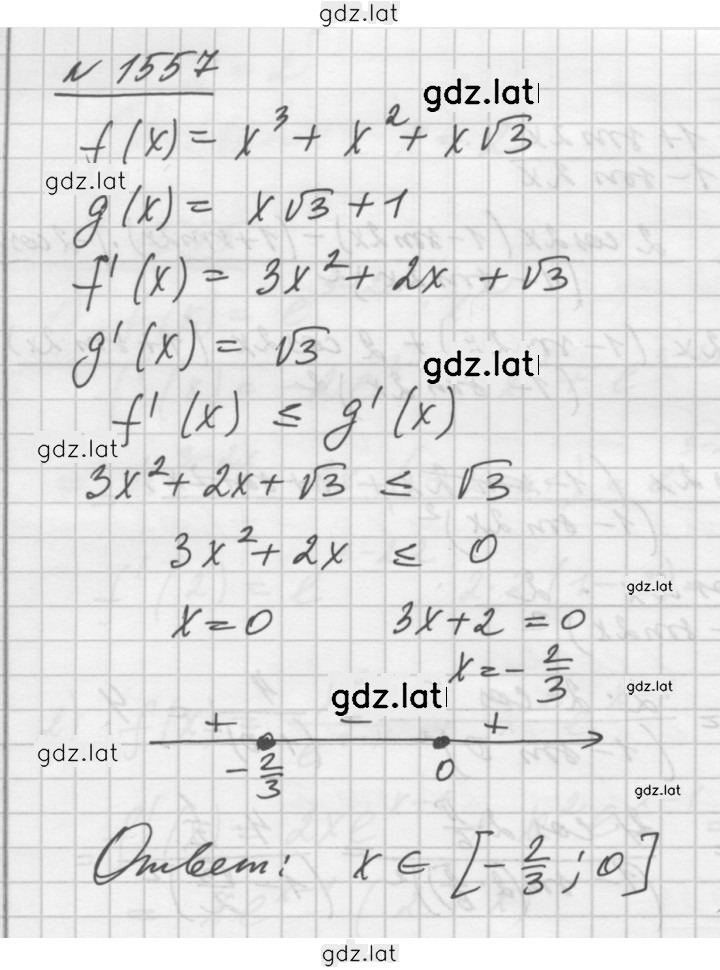 gdz.lat
N 1557
gdz.lat
f(x) = x³ + x² + x√3
gdz.lat
g(x) = x√3 + 1
f'(x) = 3x² + 2x + √3
g'(x) = √3
gdz.lat
f'(x) ≤ g'(x)
gdz.lat
3x² + 2x + √3 ≤ √3
3x² + 2x ≤ 0
gdz.lat
x = 0 3x + 2 = 0
x = -2/3
gdz.lat
gdz.lat
+ - +
gdz.lat
-2/3 0
gdz.lat
Ответ: x ∈ [-2/3; 0]
gdz.lat